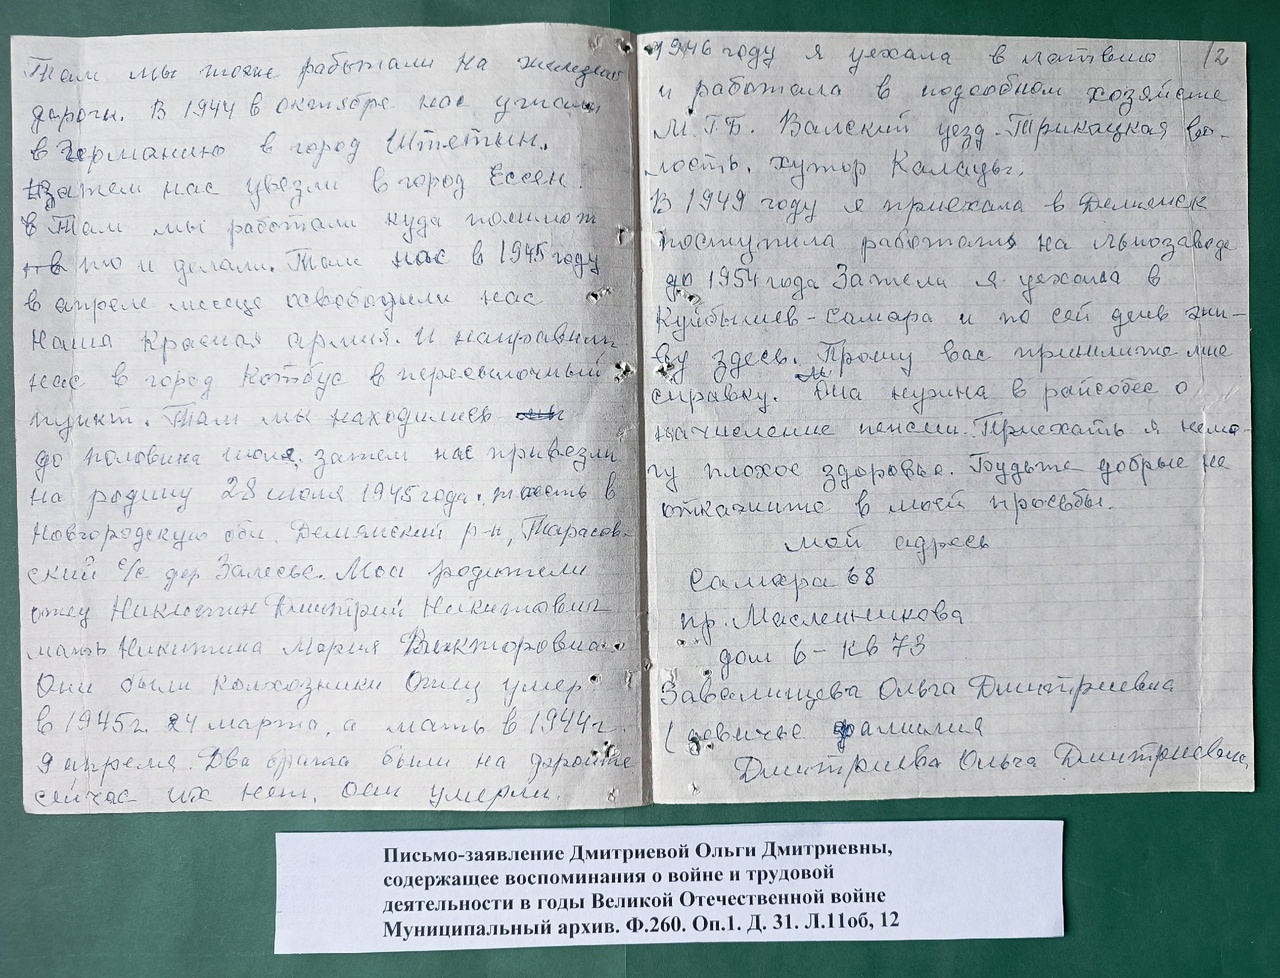 Там мы тоже работали на железной
дороги. В 1944 в октябре нас угнали
в Германию в город Штетын.
Затем нас увезли в город Ессен.
в Там мы работали куда пошлют
в то и делали. Там нас в 1945 году
в апреле месеце освободили нас
наша красная армия. И направили
нас в город Котбус в пересылочный
пункт. Там мы находились
до половина июля, затем нас привезли
на родину 28 июля 1945 года. тоесть в
Новгородскую обл. Демянский р-н, Тарасов-
ский с/с дер Залесье. Мои родители
отец Никитин Дмитрий Никитович
мать Никитина Мария Викторовна
Они были колхозники Отец умер
в 1945г. 24 марта, а мать в 1944г.
9 апреля. Два брата были на фронте
сейчас их нет, они умерли.
12
1946 году я уехала в латвию
и работала в подсобном хозяйстве
М.Г.Б. Валский уезд. Трикацкая во-
лость. хутор Калацы.
В 1949 году я приехала в Демянск
поступила работать на льнозаводе
до 1954 года Затем я уехала в
Куйбышев-Самара и по сей день жи-
ву здесь. Прошу вас пришлите мне
справку. Она нужна в райсобес о
начисление пенсии. Приехать я немо-
гу плохое здоровье. Будьте добрые не
откажите в моей просьбы.
мой адрес
Самара 68
пр. Масленникова
дом 6 - кв 73
Завалищева Ольга Дмитриевна
(девичье фамилия
Дмитриева Ольга Дмитриевна
Письмо-заявление Дмитриевой Ольги Дмитриевны,
содержащее воспоминания о войне и трудовой
деятельности в годы Великой Отечественной войне
Муниципальный архив. Ф.260. Оп.1. Д. 31. Л.11об, 12